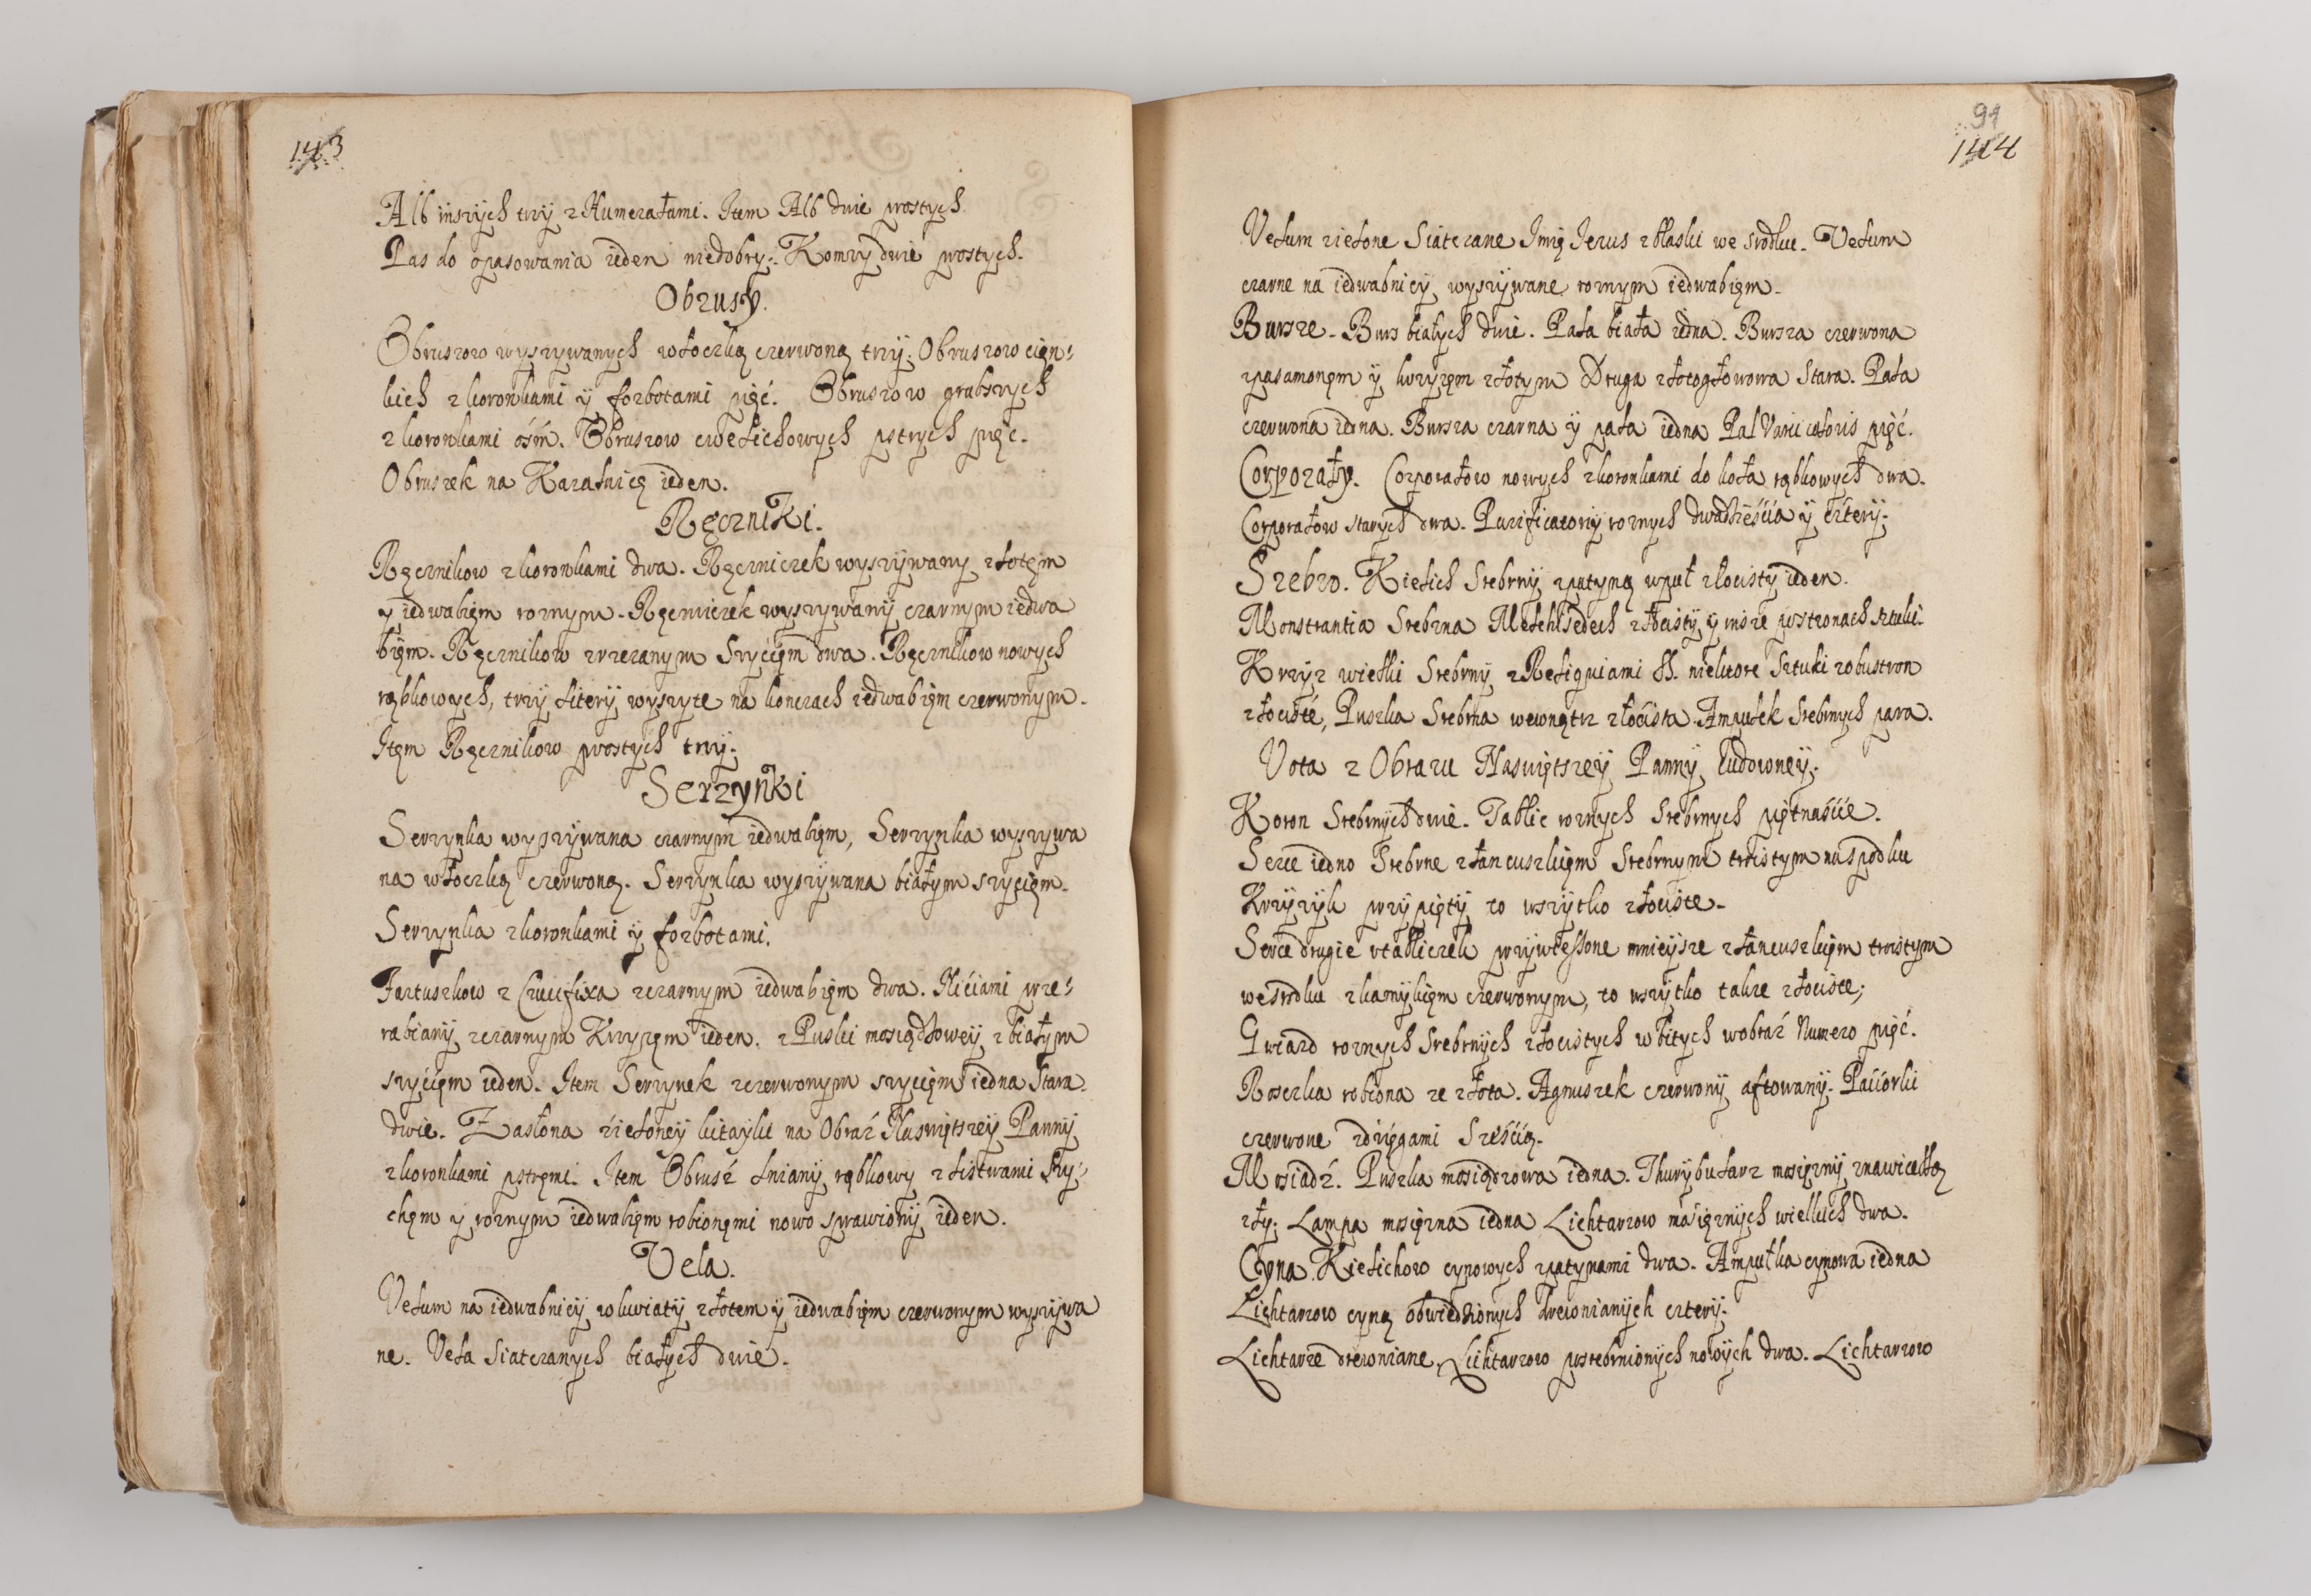 143
Alb inszych trzy z Humerałami. Item Alb dwie prostych
Pas do opasowania ieden niedobry. Komzy dwie prostych.
Obrusy.
Obrusow wyszywanych włoczką czerwoną trzy. Obrusow cien-
kich z koronkami y forbotami pięć. Obrusow grubszych
z koronkami ośm. Obrusow cwelichowych pstrych pięć.
Obrusek na Kazalnicę ieden.
Ręczniki.
Ręcznikow z koronkami dwa. Ręczniczek wyszywany złotem
y iedwabiem roznym. Ręczniczek wyszywany czarnym iedwa
biem. Ręcznikow z rzezanym szyciem dwa. Ręcznikow nowych
rąbkowych, trzy litery wyszyte na koncach iedwabiem czerwonym.
Item Ręcznikow prostych trzy.
Serzynki
Serzynka wyszywana czarnym iedwabiem, Serzynka wyszywa
na włoczką czerwoną. Serzynka wyszywana białym szyciem.
Serzynka z koronkami y forbotami.
Fartuszkow z Crucifixa z czarnym iedwabiem dwa. Niciami prze-
rabiany z czarnym Krzyzem ieden. z Puszki mosiądzowey z białym
szyciem ieden. Item Serzynek z czerwonym szyciem iedna Stara
dwie. Zasłona zieloney kitayki na Obraz Naswiętszey Panny
z koronkami pstremi. Item Obrus lniany rąbkowy z listwami Szy-
chem y roznym iedwabiem robionemi nowo sprawiony ieden.
Vela.
Velum na iedwabnicy w kwiaty złotem y iedwabiem czerwonym wyszywa
ne. Vela siatczanych białych dwie.
91
144
Velum zielone Siatczane Imię Iezus z blaski we srodku. Velum
czarne na iedwabnicy wyszywane roznym iedwabiem.
Bursze. Burs białych dwie. Pala biała iedna. Bursza czerwona
z pasamonem y krzyzem złotym Druga złotogłowowa Stara. Pala
czerwona iedna. Bursza czarna y pala iedna Pal Varii coloris pięć.
Corporały. Corporałow nowych z koronkami do koła rąbkowych dwa.
Corporałow starych dwa. Purificatorzy roznych dwadzieścia y cztery.
Srebro. Kielich Srebrny z patyną wpuł złocisty ieden.
Monstrantia Srebrna Melchisedech złocisty y insze po stronach sztuki.
Krzyz wielki Srebrny z Reliquiami SS. niektore Sztuki z obustron
złociste, Puszka Srebrna wewnątrz złocista. Ampułek Srebrnych para.
Vota z Obrazu Naswiętszey Panny Cudowney.
Koron Srebrnych dwie. Tablic roznych Srebrnych piętnaście.
Serce iedno Srebrne z łancuszkiem Srebrnym troistym na spodku
Krzyzyk przypięty to wszytko złociste.
Serce drugie v tabliczek przywieszone mnieysze z łancuszkiem troistym
we srodku z kamykiem czerwonym, to wszytko takze złociste;
Gwiazd roznych Srebrnych złocistych wbitych w obraz Numero pięć.
Roszczka robiona ze złota. Agnuszek czerwony aftowany. Paciorki
czerwone z dzięgami Sześcią.
Mosiądz. Puszka mosiądzowa iedna. Thurybularz mosięzny z nawiculką
zły. Lampa mosięzna iedna Lichtarzow mosięznych wielkich dwa.
Cyna. Kielichow cynowych z patynami dwa. Ampułka cynowa iedna
Lichtarzow cyną obwiedzionych drewnianych cztery.
Lichtarze drewniane. Lichtarzow posrebrnionych nowych dwa. Lichtarzow